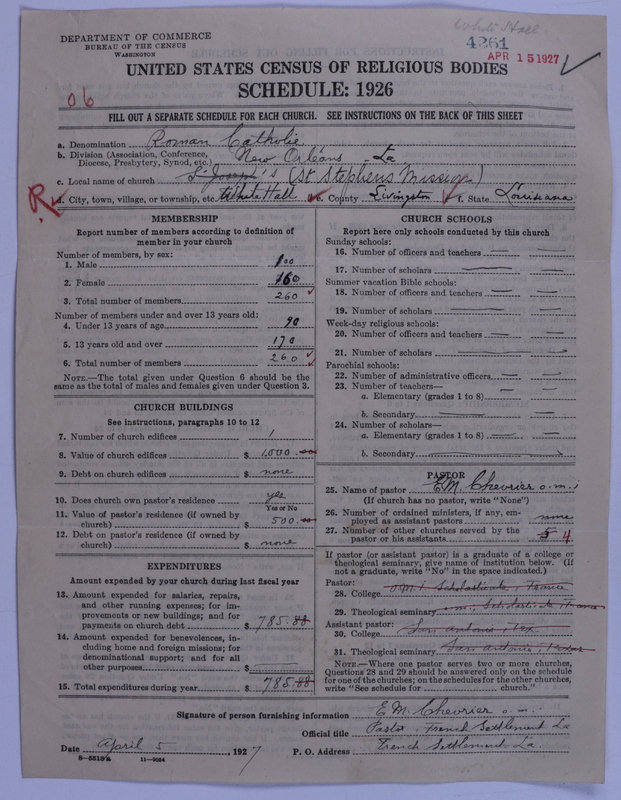 White Hall
DEPARTMENT OF COMMERCE
BUREAU OF THE CENSUS
WASHINGTON
4261
APR 15 1927
UNITED STATES CENSUS OF RELIGIOUS BODIES
SCHEDULE: 1926
06
FILL OUT A SEPARATE SCHEDULE FOR EACH CHURCH. SEE INSTRUCTIONS ON THE BACK OF THIS SHEET
a. Denomination Roman Catholic
b. Division (Association, Conference, Diocese, Presbytery, Synod, etc.) New Orleans La
c. Local name of church St Joseph's (St Stephens Mission)
R
d. City, town, village, or township, etc. White Hall e. County Livingston f. State Louisiana
MEMBERSHIP
Report number of members according to definition of
member in your church
Number of members, by sex:
1. Male 100
2. Female 160
3. Total number of members 260
Number of members under and over 13 years old:
4. Under 13 years of age 90
5. 13 years old and over 170
6. Total number of members 260
NOTE.—The total given under Question 6 should be the
same as the total of males and females given under Question 3.
CHURCH BUILDINGS
See instructions, paragraphs 10 to 12
7. Number of church edifices 1
8. Value of church edifices $ 1,000.00
9. Debt on church edifices $ none
10. Does church own pastor's residence yes
Yes or No
11. Value of pastor's residence (if owned by
church) $ 500.00
12. Debt on pastor's residence (if owned by
church) $ none
EXPENDITURES
Amount expended by your church during last fiscal year
13. Amount expended for salaries, repairs,
and other running expenses; for im-
provements or new buildings; and for
payments on church debt $ 785.88
14. Amount expended for benevolences, in-
cluding home and foreign missions; for
denominational support; and for all
other purposes $
15. Total expenditures during year $ 785.88
CHURCH SCHOOLS
Report here only schools conducted by this church
Sunday schools:
16. Number of officers and teachers
17. Number of scholars
Summer vacation Bible schools:
18. Number of officers and teachers
19. Number of scholars
Week-day religious schools:
20. Number of officers and teachers
21. Number of scholars
Parochial schools:
22. Number of administrative officers
23. Number of teachers—
a. Elementary (grades 1 to 8)
b. Secondary
24. Number of scholars—
a. Elementary (grades 1 to 8)
b. Secondary
PASTOR
25. Name of pastor E.M. Chevrier o.m.i
(If church has no pastor, write "None")
26. Number of ordained ministers, if any, em-
ployed as assistant pastors none
27. Number of other churches served by the
pastor or his assistants 5 4
If pastor (or assistant pastor) is a graduate of a college or
theological seminary, give name of institution below. (If
not a graduate, write "No" in the space indicated.)
Pastor:
28. College O.M.I Scholasticate France
29. Theological seminary o.m.i Scholasticate France
Assistant pastor:
30. College San Antonio Tex
31. Theological seminary San Antonio, Texas
NOTE.—Where one pastor serves two or more churches,
Questions 28 and 29 should be answered only on the schedule
for one of the churches; on the schedules for the other churches,
write "See schedule for church."
Signature of person furnishing information E.M. Chevrier o.m.i.
Official title Pastor, French Settlement La
Date April 5, 1927 P. O. Address French Settlement La.
8-5513a 11-9054